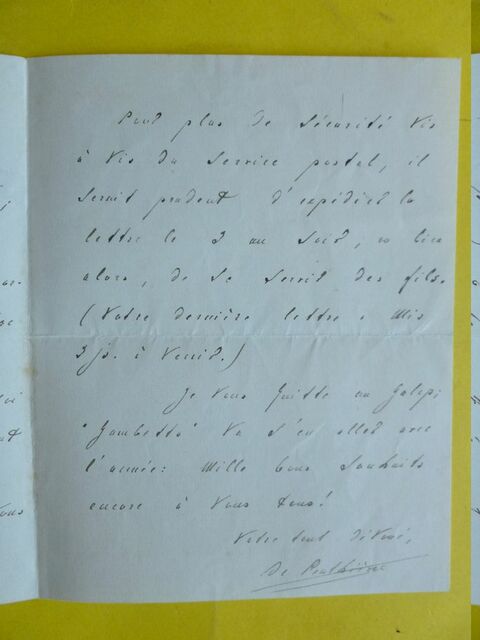 Pour plus de sécurité vis
à vis du service postal, il
serait prudent d'expédier la
lettre le 3 au soir, ou bien
alors, de se servir des fils.
(Votre dernière lettre a mis
3 js. à venir.)
Je vous quitte au galop:
"Gambetta" va s'en aller avec
l'année: Mille bons souhaits
encore à vous tous!
Votre tout dévoué,
De